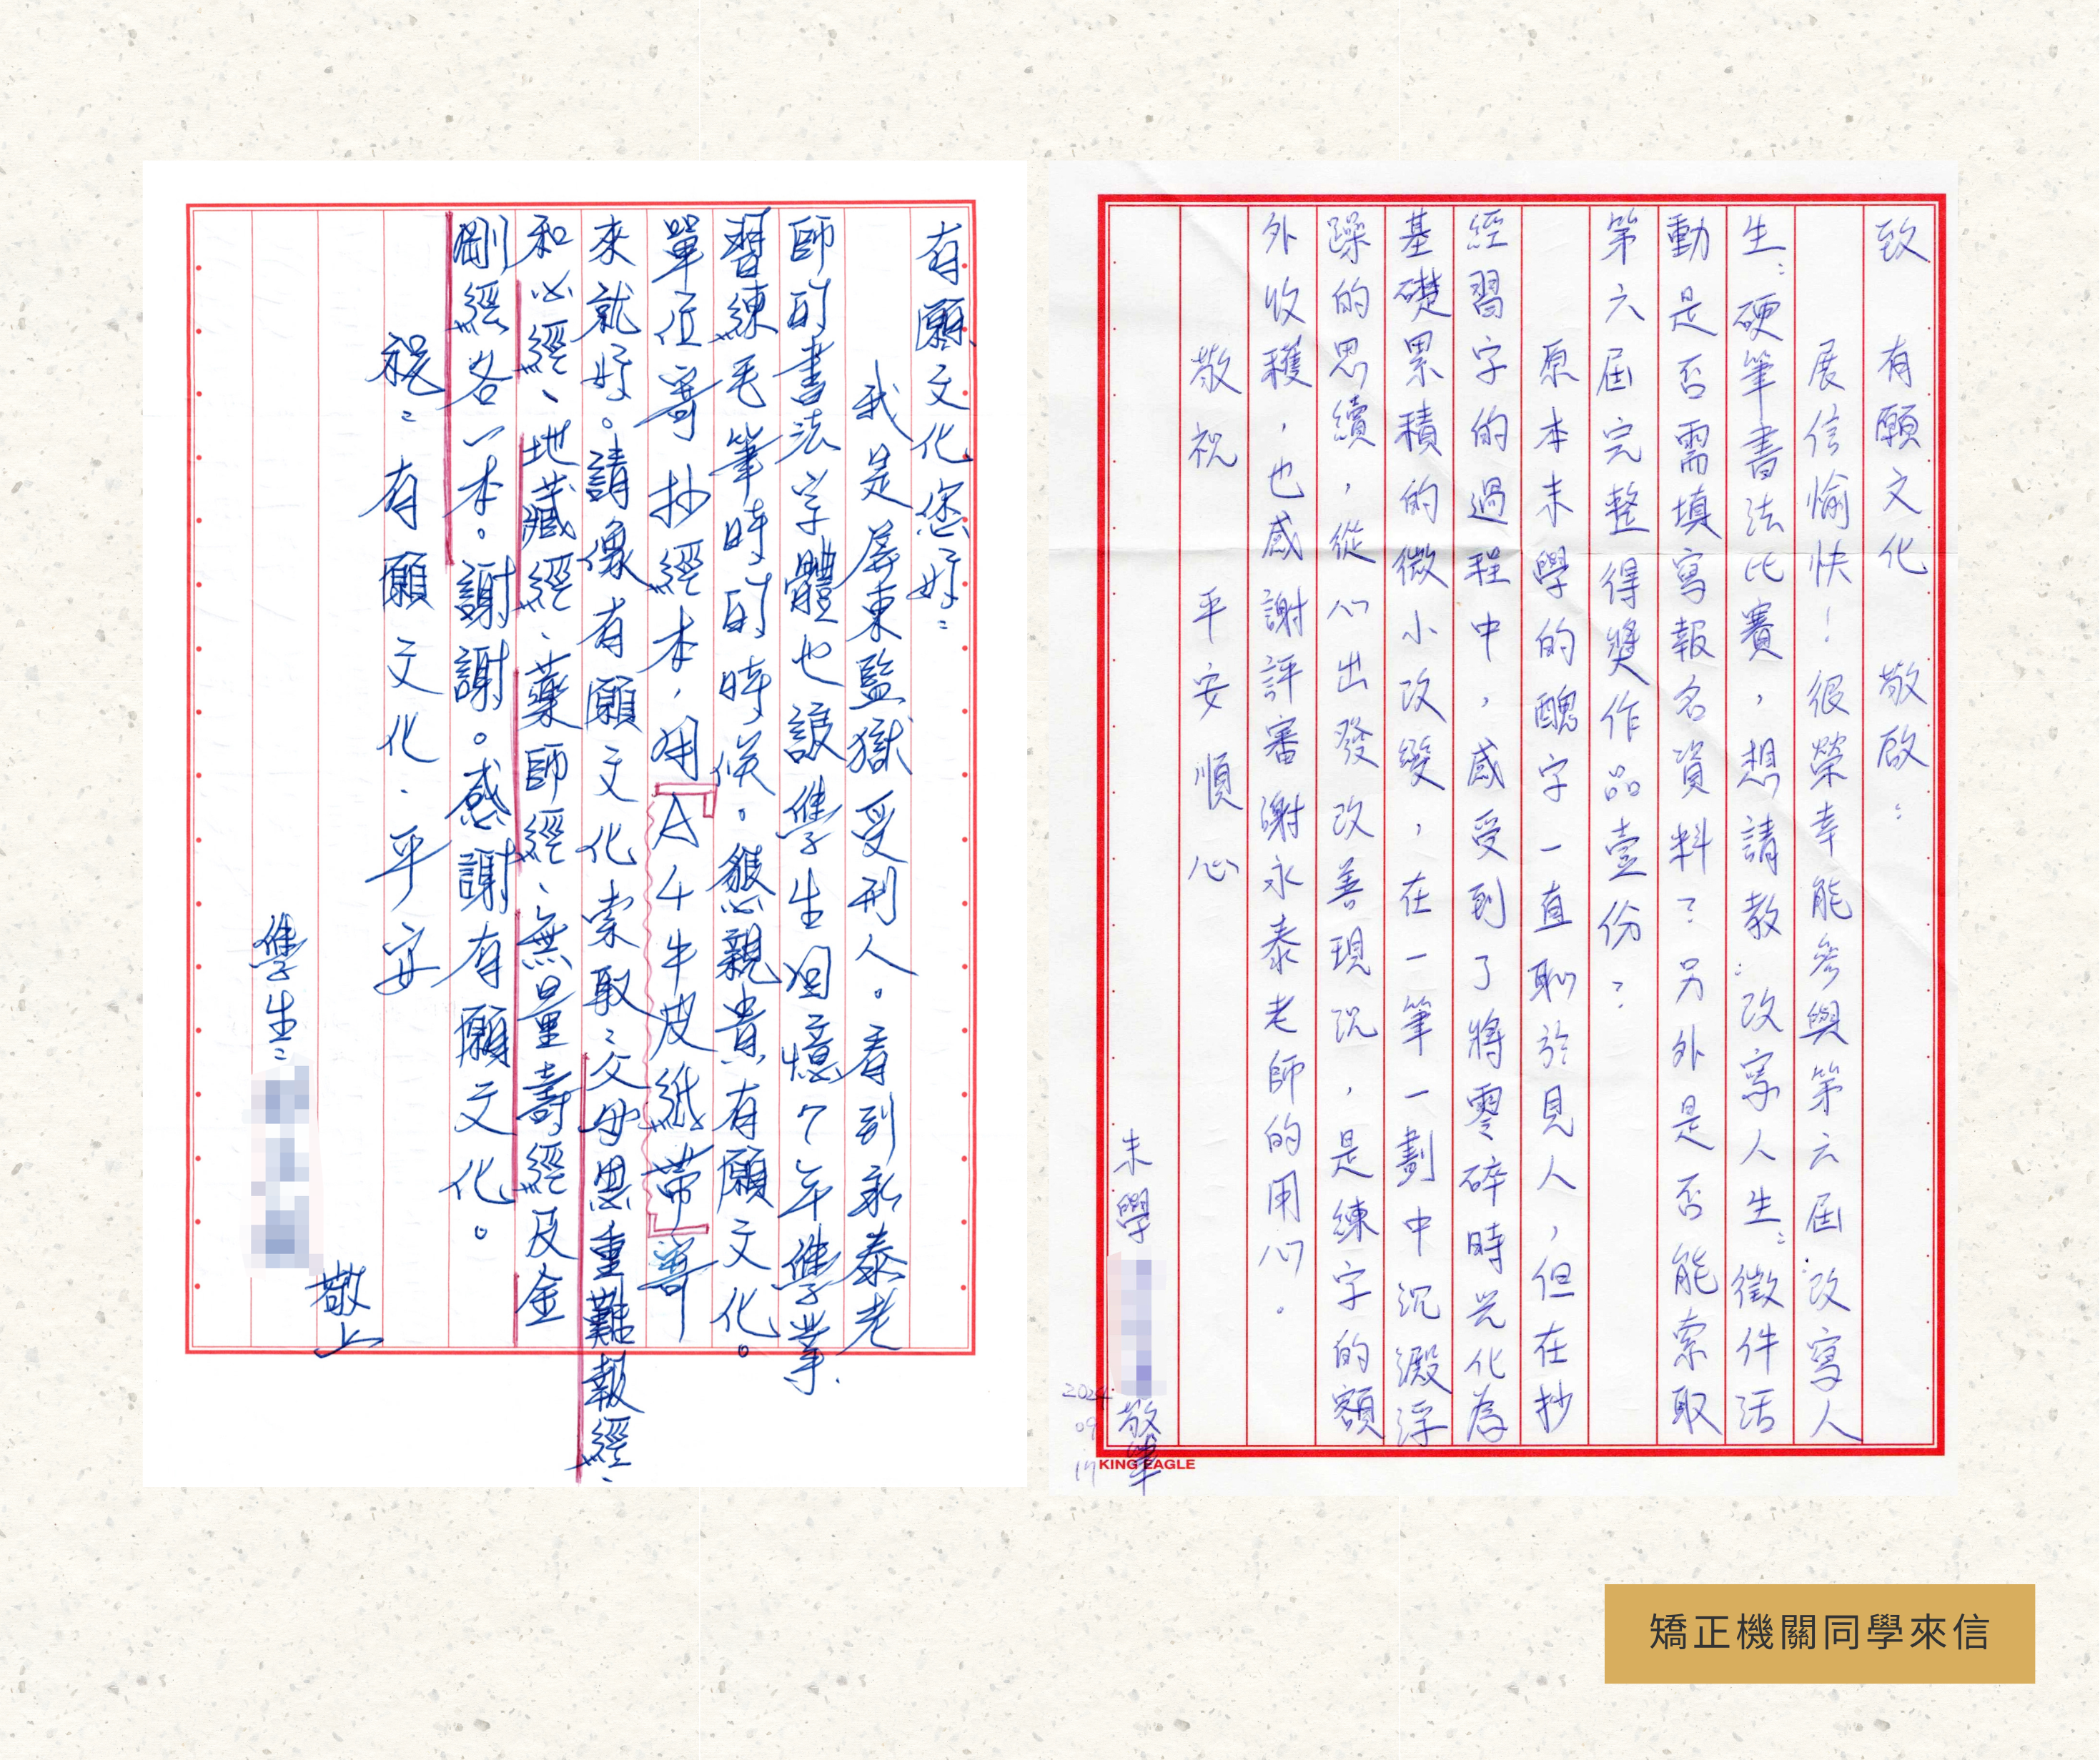 致　有願文化　敬啟：
展信愉快！很榮幸能參與第六屆：改寫人
生：硬筆書法比賽，想請教：改寫人生：徵件活
動是否需填寫報名資料？另外是否能索取
第六屆完整得獎作品壹份？
原本末學的醜字一直恥於見人，但在抄
經習字的過程中，感受到了將零碎時光化為
基礎累積的微小改變，在一筆一劃中沉澱浮
躁的思續，從心出發改善現況，是練字的額
外收穫，也感謝評審謝永泰老師的用心。
敬祝　平安順心
末學
敬筆
2024
09
17
KING EAGLE
有願文化您好：
我是屏東監獄受刑人。看到永泰老
師的書法字體也讓學生回憶7年學業
習練毛筆時的時候。懇親貴有願文化。
單位寄抄經本，用『A4牛皮紙帶』寄
來就好。請像有願文化索取：父母恩重難報經、
和心經、地藏經、藥師經、無量壽經及金
剛經各一本。謝謝。感謝有願文化。
祝：有願文化．平安
敬上
學生：
矯正機關同學來信